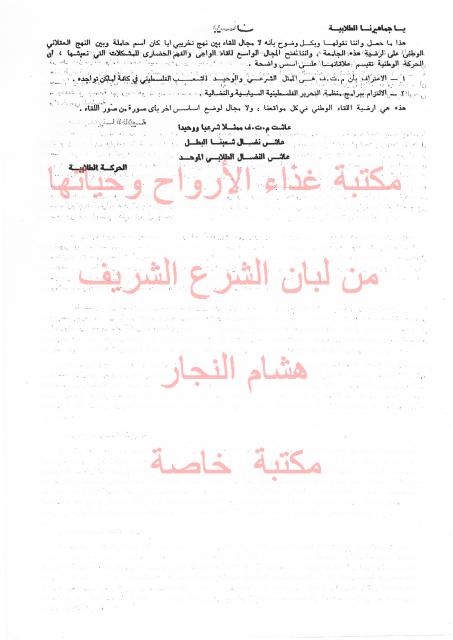 يا جماهيرنا الطلابية
هذا ما حصل واننا نقولها وبكل وضوح بأنه لا مجال للقاء بين نهج تخريبي ايا كان اسم حامله وبين النهج العقلاني
الوطني على ارضية هذه الجامعة ، واننا نفتح المجال الواسع للقاء الواعي والفهم الحضاري للمشكلات التي نعيشها ، ان
الحركة الوطنية تقيم علاقاتها على اسس واضحة .
١ ــ الاعتراف بأن م.ت.ف هي الممثل الشرعي والوحيد للشعب الفلسطيني في كافة اماكن تواجده .
٢ ــ الالتزام ببرامج منظمة التحرير الفلسطينية السياسية والنضالية .
هذه هي ارضية اللقاء الوطني في كل مواقعنا ، ولا مجال لوضع اسس اخرى لأي صورة من صور اللقاء .
عاشت م.ت.ف ممثلا شرعيا ووحيدا
عاش نضال شعبنا البطل
عاش النضال الطلابي الموحد
الحركة الطلابية
مكتبة غذاء الأرواح وحياتها
من لبان الشرع الشريف
هشام النجار
مكتبة خاصة